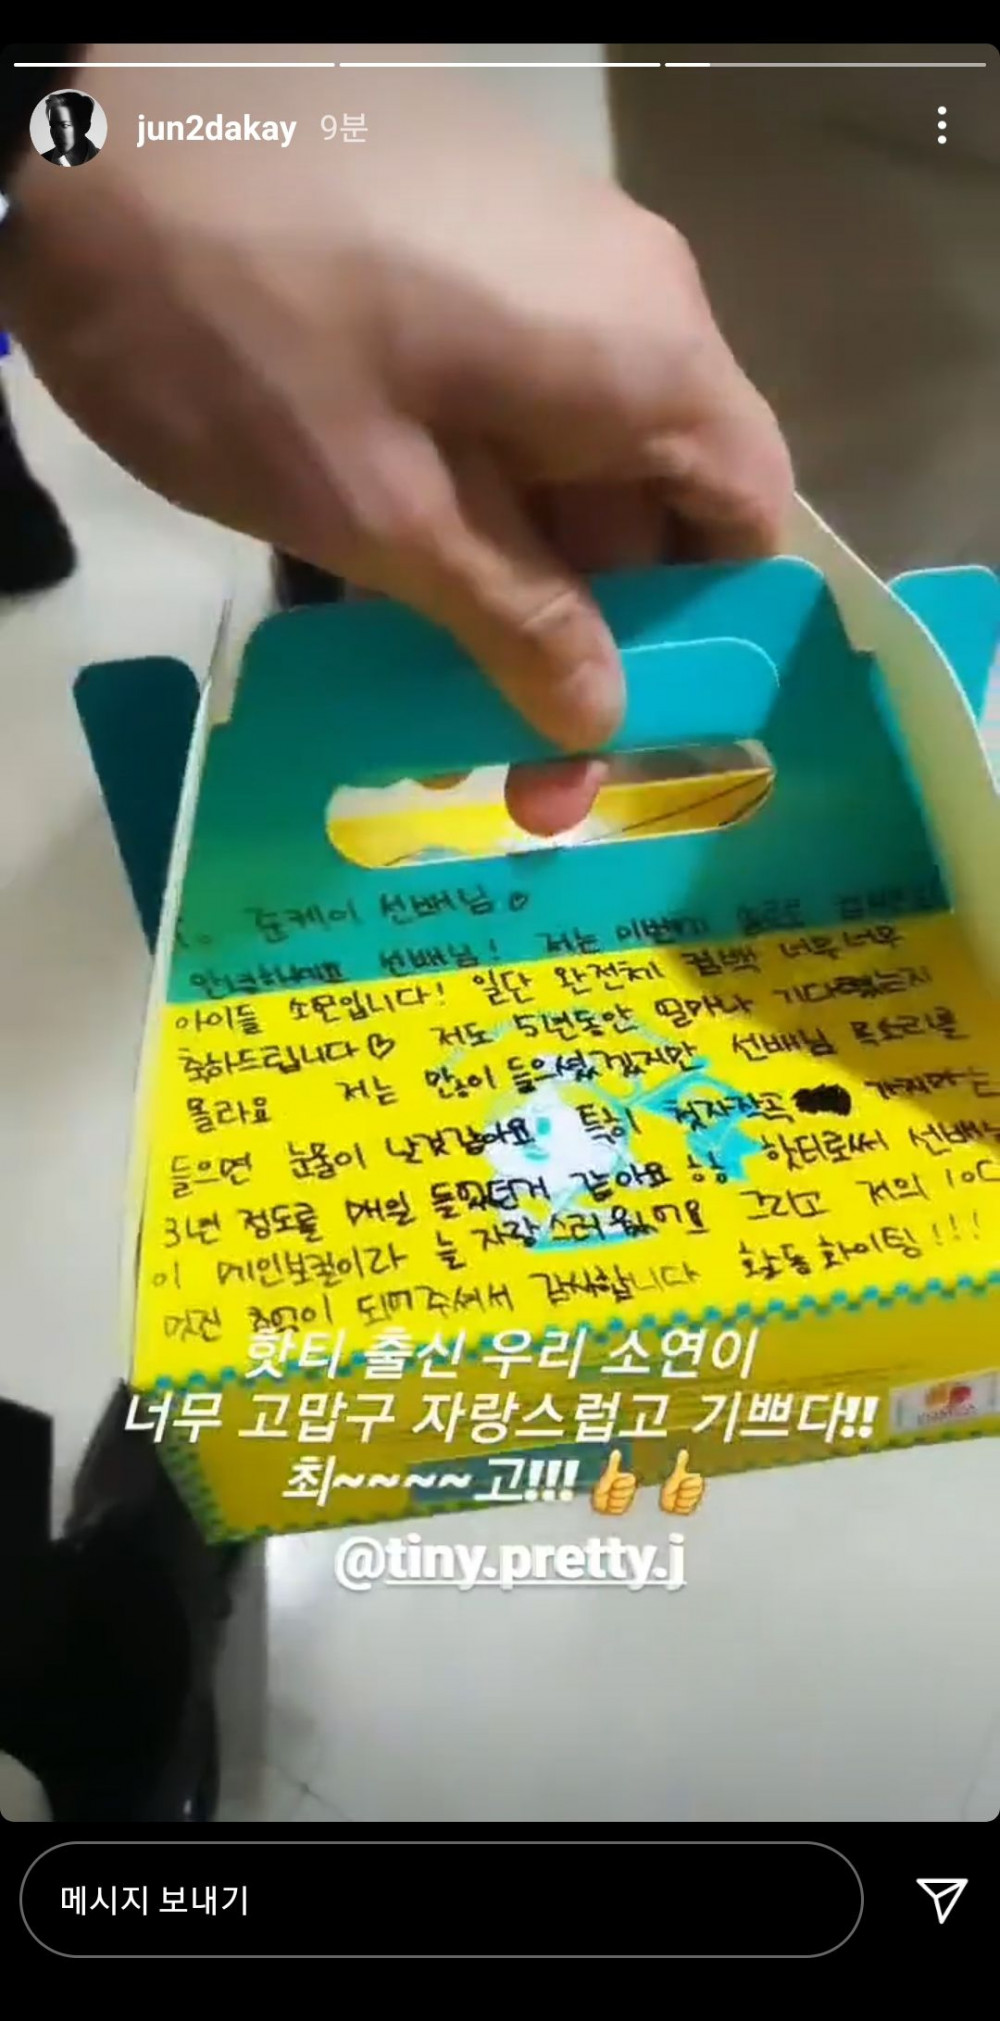 jun2dakay 9분
준케이 선배님 ♡
안녕하세요 선배님! 저는 이번에 솔로로
아이들 소연입니다! 일단 완전체 컴백 너무너무
축하드립니다♡ 저도 5년동안 얼마나 기다렸는지
몰라요 저는 많이 들으셨겠지만 선배님 목소리를
들으면 눈물이 날것같아요 특히 첫자작곡 가지마는
3년 정도를 매일 들었던거 같아요 ㅎㅎ 핫티로써 선배님
이 메인보컬이라 늘 자랑스러웠어요 그리고 저의 10대
멋진 추억이 되어주셔서 감사합니다 활동 화이팅!!!
핫티 출신 우리 소연이
너무 고맙구 자랑스럽고 기쁘다!!
최~~~~고!!!👍👍
@tiny.pretty.j
메시지 보내기